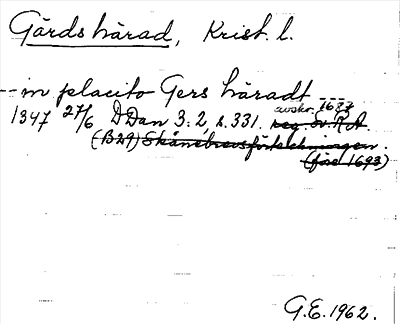 Gärds härad, Krist. l.
-- in placito Gers häradt ---
avskr. 1637
1347 27/6 DDan 3:2, s. 331. reg. Sv. R A.
(B29) Skånebrevsförteckningen.
(före 1693)
G.E. 1962.